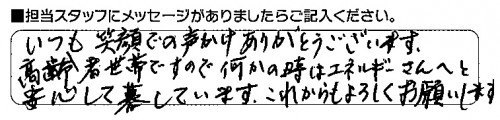 ■担当スタッフにメッセージがありましたらご記入ください。
いつも笑顔での声かけありがとうございます.
高齢者世帯ですので何かの時はエネルギーさんへと
安心して暮しています.これからもよろしくお願いします